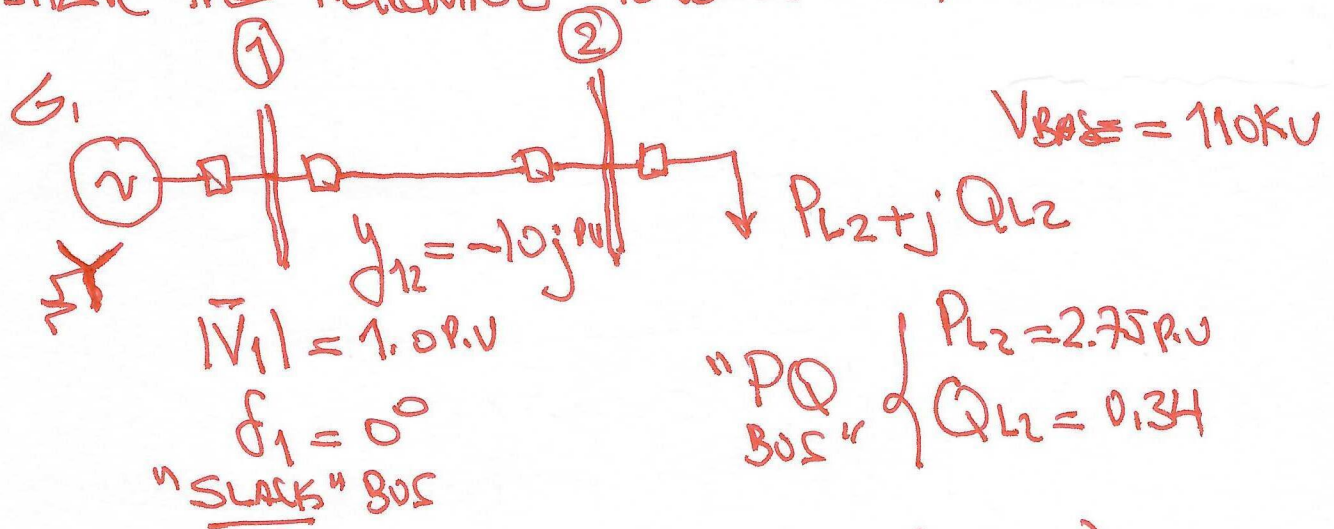 ① ②
G₁
VBASE = 110KV
y₁₂ = -10j PU
PL2 + j QL2
|V̄₁| = 1.0 P.U
δ₁ = 0°
"SLACK" BUS
"PQ BUS" { PL2 = 2.75 P.U
QL2 = 0.34